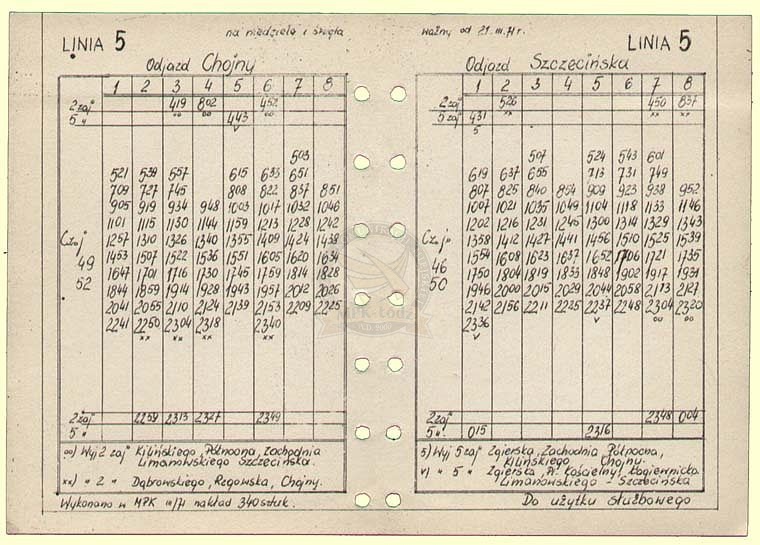 LINIA 5
na niedziele i święta
Odjazd Chojny
1 2 3 4 5 6 7 8
2 zaj 419 802 452
oo oo oo
5 " 443
v
503
521 539 557 615 633 651
709 727 745 808 822 837 851
905 919 934 948 1003 1017 1032 1046
1101 1115 1130 1144 1159 1213 1228 1242
1257 1310 1326 1340 1355 1409 1424 1438
1453 1507 1522 1536 1551 1605 1620 1634
1647 1701 1716 1730 1745 1759 1814 1828
1844 1859 1914 1928 1943 1957 2012 2026
2041 2055 2110 2124 2139 2153 2209 2225
2241 2250 2304 2318 2340
xx xx xx xx
Cz.aj.
49
52
2 zaj 2259 2313 2327 2349
5 "
oo) Wyj 2 zaj Kilińskiego, Północna, Zachodnia
Limanowskiego Szczecińska.
xx) " 2 " Dąbrowskiego, Rzgowska, Chojny.
Wykonano w MPK III/71 nakład 340 sztuk.
ważny od 21.III.71r.
LINIA 5
Odjazd Szczecińska
1 2 3 4 5 6 7 8
2 zaj 526 450 837
xx xx xx
5 zaj 431
5
507 524 543 601
619 637 655 713 731 749
807 825 840 854 909 923 938 952
1007 1021 1035 1049 1104 1118 1133 1146
1202 1216 1231 1245 1300 1314 1329 1343
1358 1412 1427 1441 1456 1510 1525 1539
1554 1608 1623 1637 1652 1706 1721 1735
1750 1804 1819 1833 1848 1902 1917 1931
1946 2000 2015 2029 2044 2058 2113 2127
2142 2156 2211 2225 2237 2248 2304 2320
2336 v oo oo
v
Cz.aj.
46
50
2 zaj 2348 004
5 ". 015 2316
5) Wyj 5 zaj Zgierska, Zachodnia Północna,
Kilińskiego Chojny.
v) " 5 " Zgierska, Pl. Kościelny, Łagiewnicka
Limanowskiego - Szczecińska
Do użytku służbowego
MPK-Łódź